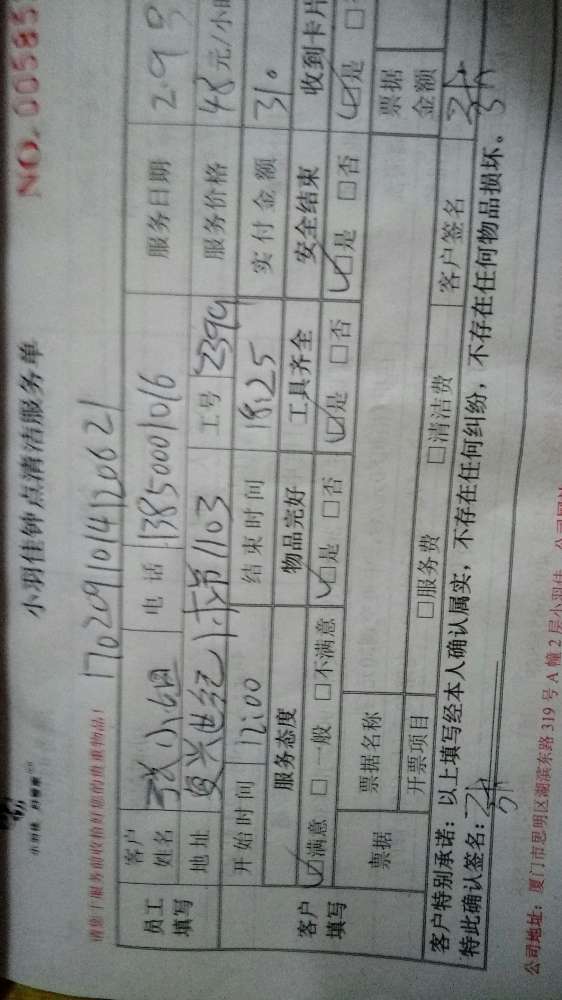 小羽佳钟点清洁服务单
NO.00585
请您!服务前收拾好您的贵重物品!
1702091014120621
员工填写 客户姓名 张小姐 电话 13850001016 服务日期 2.9号
地址 复兴世纪 1103 工号 2394 服务价格 48元/小时
开始时间 12:00 结束时间 18:25 实付金额 310
客户填写 服务态度 物品完好 工具齐全 安全结束 收到卡片
☑满意 □一般 □不满意 ☑是 □否 ☑是 □否 ☑是 □否 ☑是 □
票据 票据名称 票据金额
开票项目 □服务费 □清洁费 客户签名
客户特别承诺:以上填写经本人确认属实,不存在任何纠纷,不存在任何物品损坏。
特此确认签名:
公司地址:厦门市思明区湖滨东路319号A幢2层小羽佳